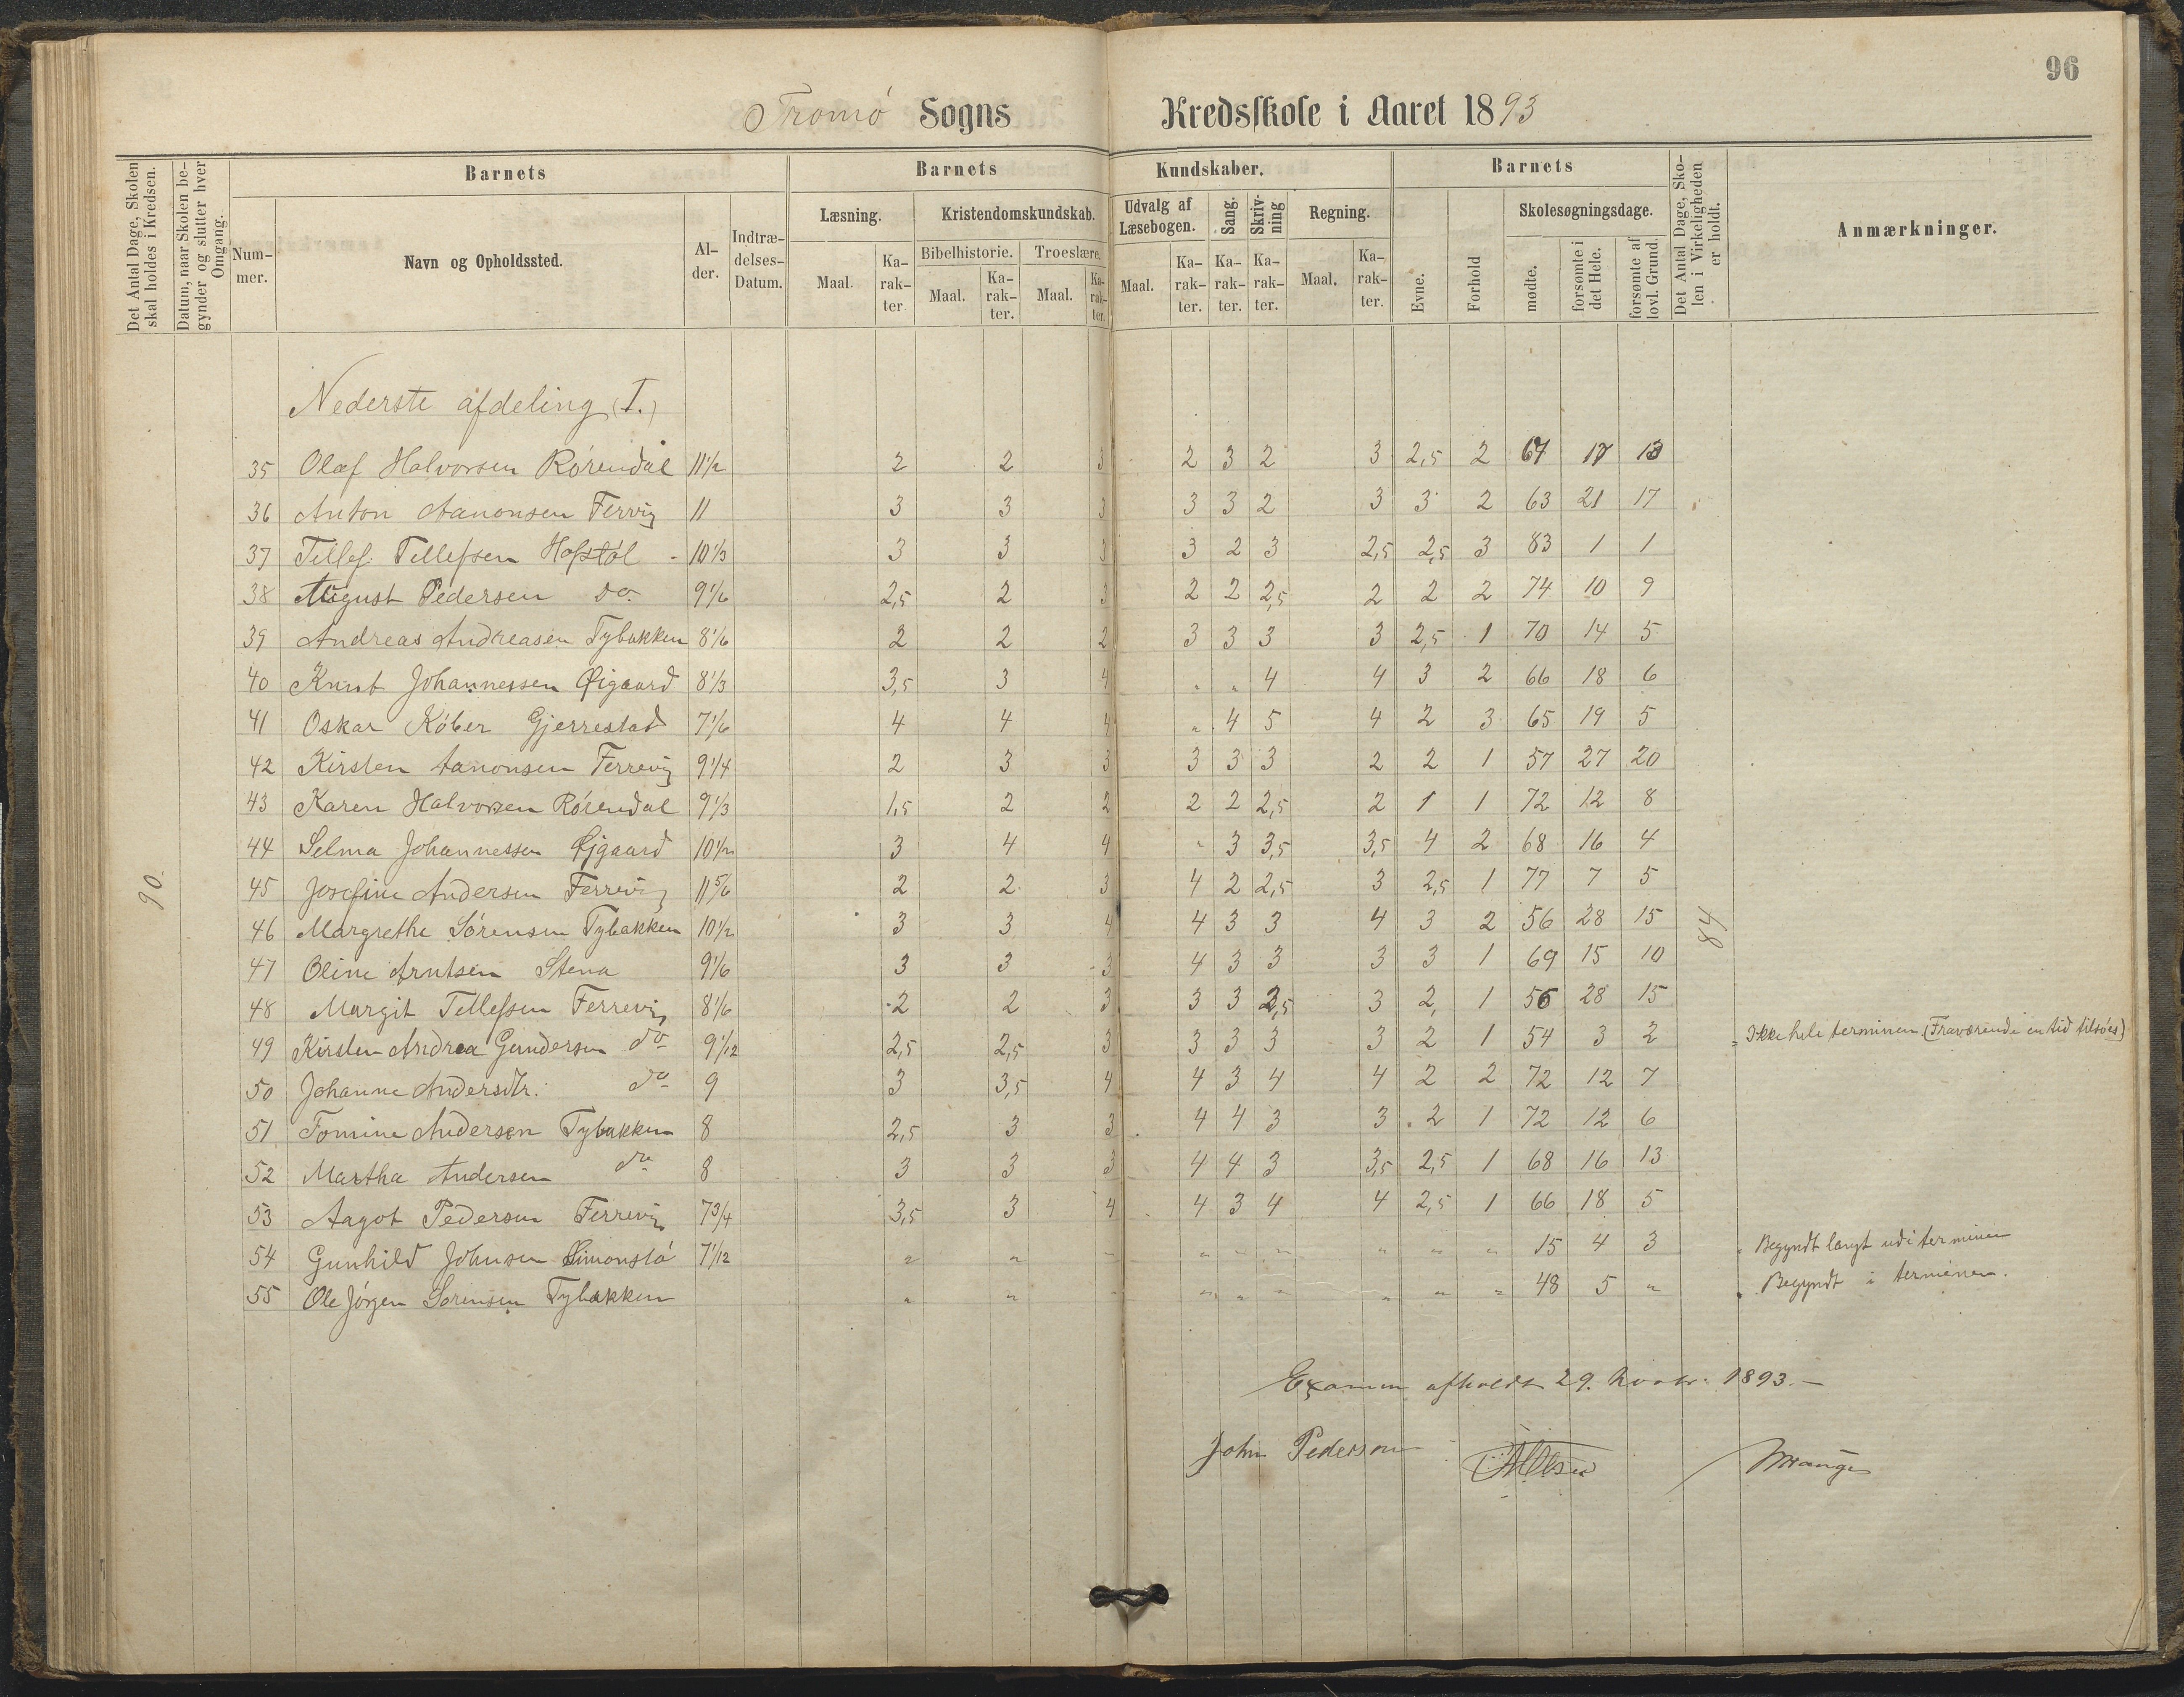 96
Tromø Sogns Kredsskole i Aaret 1893
Det Antal Dage, Skolen skal holdes i Kredsen.
Datum, naar Skolen begynder og slutter hver Omgang.
Barnets
Barnets Kundskaber.
Barnets
Det Antal Dage, Skolen i Virkeligheden er holdt.
Anmærkninger.
Nummer.
Navn og Opholdssted.
Alder.
Indtrædelses-Datum.
Læsning.
Kristendomskundskab.
Udvalg af Læsebogen.
Sang.
Skrivning
Regning.
Evne.
Forhold
Skolesøgningsdage.
Bibelhistorie.
Troeslære.
Maal. Karakter. Maal. Karakter. Maal. Karakter. Maal. Karakter. Karakter. Karakter. Maal. Karakter.
mødte.
forsømte i det Hele.
forsømte af lovl. Grund.
Nederste afdeling (I.)
35 Olaf Halvorsen Rørendal 11 1/2 2 2 3 2 3 2 3 2,5 2 67 17 13
36 Anton Aanonsen Fervig 11 3 3 3 3 3 2 3 3 2 63 21 17
37 Tellef Tellefsen Hofstøl 10 1/3 3 3 3 3 2 3 2,5 2,5 3 83 1 1
38 August Pedersen do. 9 1/6 2,5 2 3 2 2 2,5 2 2 2 74 10 9
39 Andreas Andreasen Tybakken 8 1/6 2 2 2 3 3 3 3 2,5 1 70 14 5
40 Knut Johannessen Øigaard 8 1/3 3,5 3 4 " " 4 4 3 2 66 18 6
41 Oskar Køber Gjerrestad 7 1/6 4 4 4 " 4 5 4 2 3 65 19 5
42 Kirsten Aanonsen Ferrevig 9 1/4 2 3 3 3 3 3 2 2 1 57 27 20
43 Karen Halvorsen Rørendal 9 1/3 1,5 2 2 2 2 2,5 2 1 1 72 12 8
44 Selma Johannessen Øjgaard 10 1/2 3 4 4 " 3 3,5 3,5 4 2 68 16 4
45 Josefine Andersen Ferrevig 11 5/6 2 2 3 4 2 2,5 3 2,5 1 77 7 5
90.
46 Margrethe Sørensen Tybakken 10 1/2 3 3 4 4 3 3 4 3 2 56 28 15
84
47 Oline Arntsen Stena 9 1/6 3 3 3 4 3 3 3 3 1 69 15 10
48 Margit Tellefsen Ferrevig 8 1/6 2 2 3 3 3 2,5 3 2, 1 56 28 15
49 Kirsten Andrea Gundersen do 9 1/12 2,5 2,5 3 3 3 3 3 2 1 54 3 2 Ikke hele terminen (Fraværende en tid tilsøes)
50 Johanne Andersdtr. do 9 3 3,5 4 4 3 4 4 2 2 72 12 7
51 Tomine Andersen Tybakken 8 2,5 3 3 4 4 3 3 2 1 72 12 6
52 Martha Andersen do 8 3 3 3 4 4 3 3,5 2,5 1 68 16 13
53 Aagot Pedersen Ferrevig 7 3/4 3,5 3 4 4 3 4 4 2,5 1 66 18 5
54 Gunhild Johnsen Simonstø 7 1/12 " " " " " " " " " 15 4 3 Begyndt langt ud i terminen
55 Ole Jørgen Sørensen Tybakken " " " " " " " " " 48 5 " Begyndt i terminen.
Examen afholdt 29. Novbr. 1893.
John Pederson